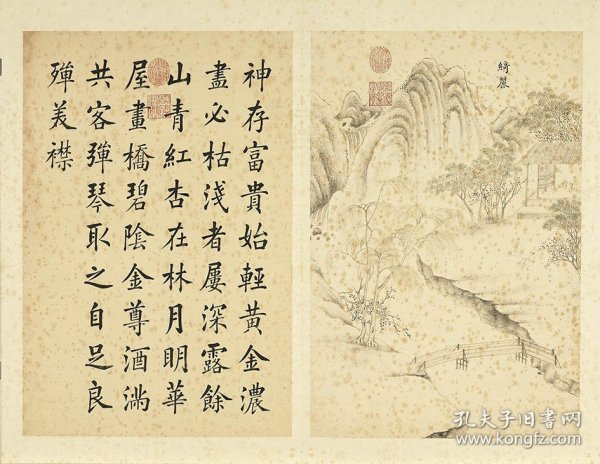 綺麗
神存富貴始輕黃金濃
盡必枯淺者屢深露餘
山青紅杏在林月明華
屋畫橋碧陰金尊酒滿
共客彈琴取之自足良
殫美襟
孔夫子旧书网
www.kongfz.com